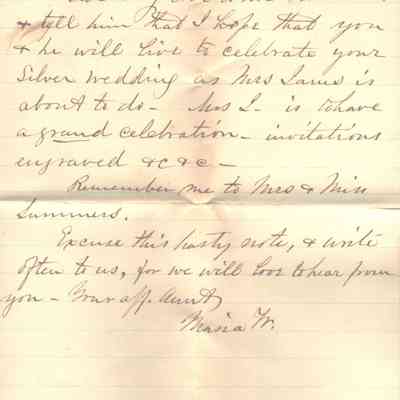 & tell him that I hope that you
& he will live to celebrate your
Silver wedding as Mrs is
about to do – Mrs L. is to have
a grand celebration – invitations
engraved &c &c –
Remember me to Mrs & Miss
Summers.
Excuse this hasty note, & write
often to us, for we will love to hear from
you – Your aff. Aunt
Maria W.